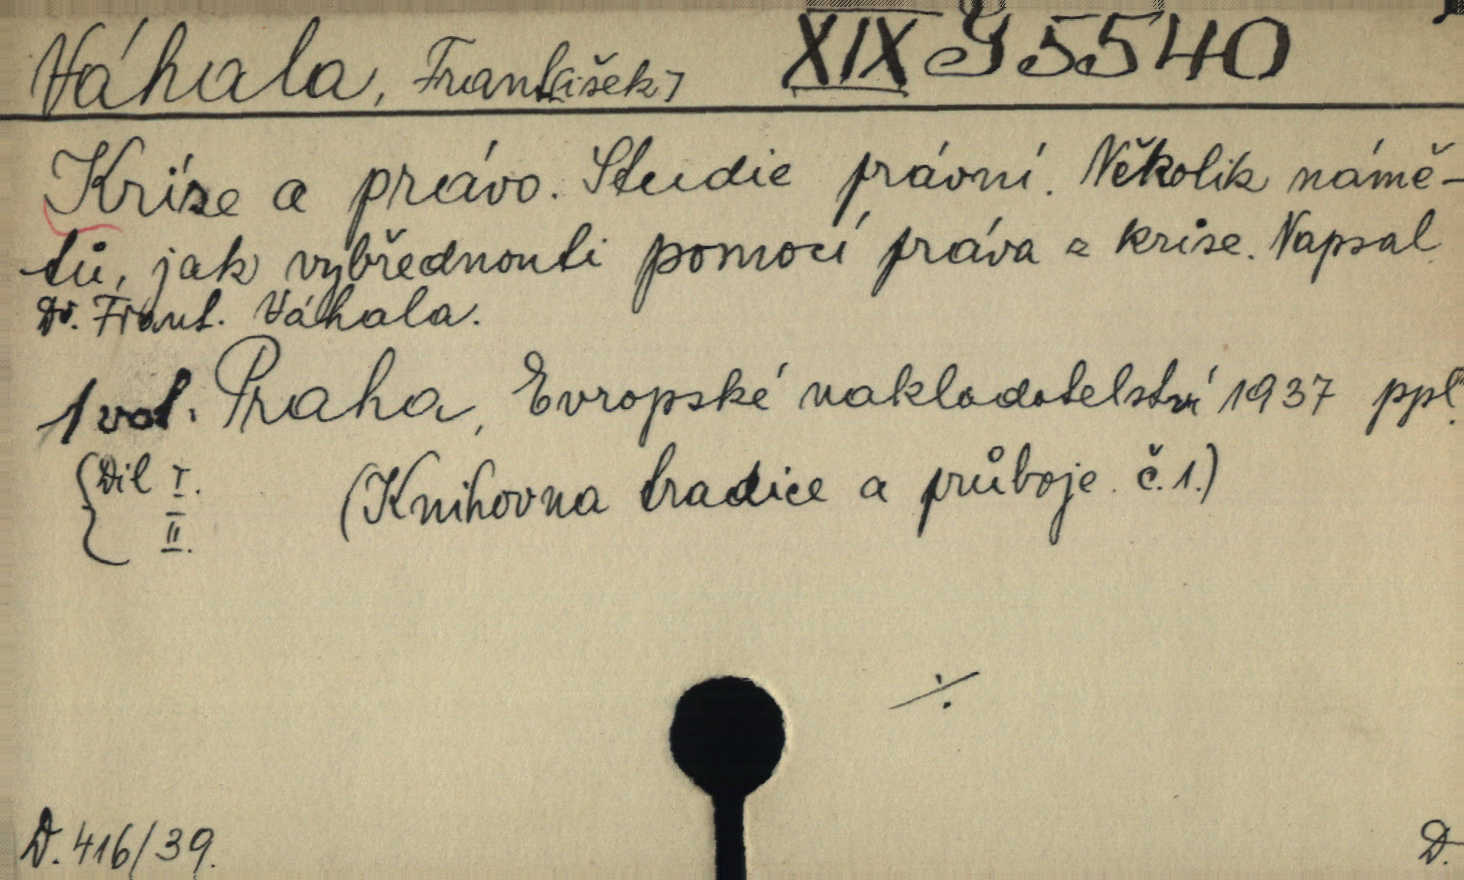 Váhala, Frant[išek] XIX J 5540
Krise a právo. Studie právní. Několik námě-
tů, jak vybřednouti pomocí práva z krise. Napsal
Dr. Frant. Váhala.
1 vol. Praha, Evropské nakladatelství 1937 ppl.
{Díl I. (Knihovna tradice a průboje. č. 1.)
II.
D. 416/39. D.